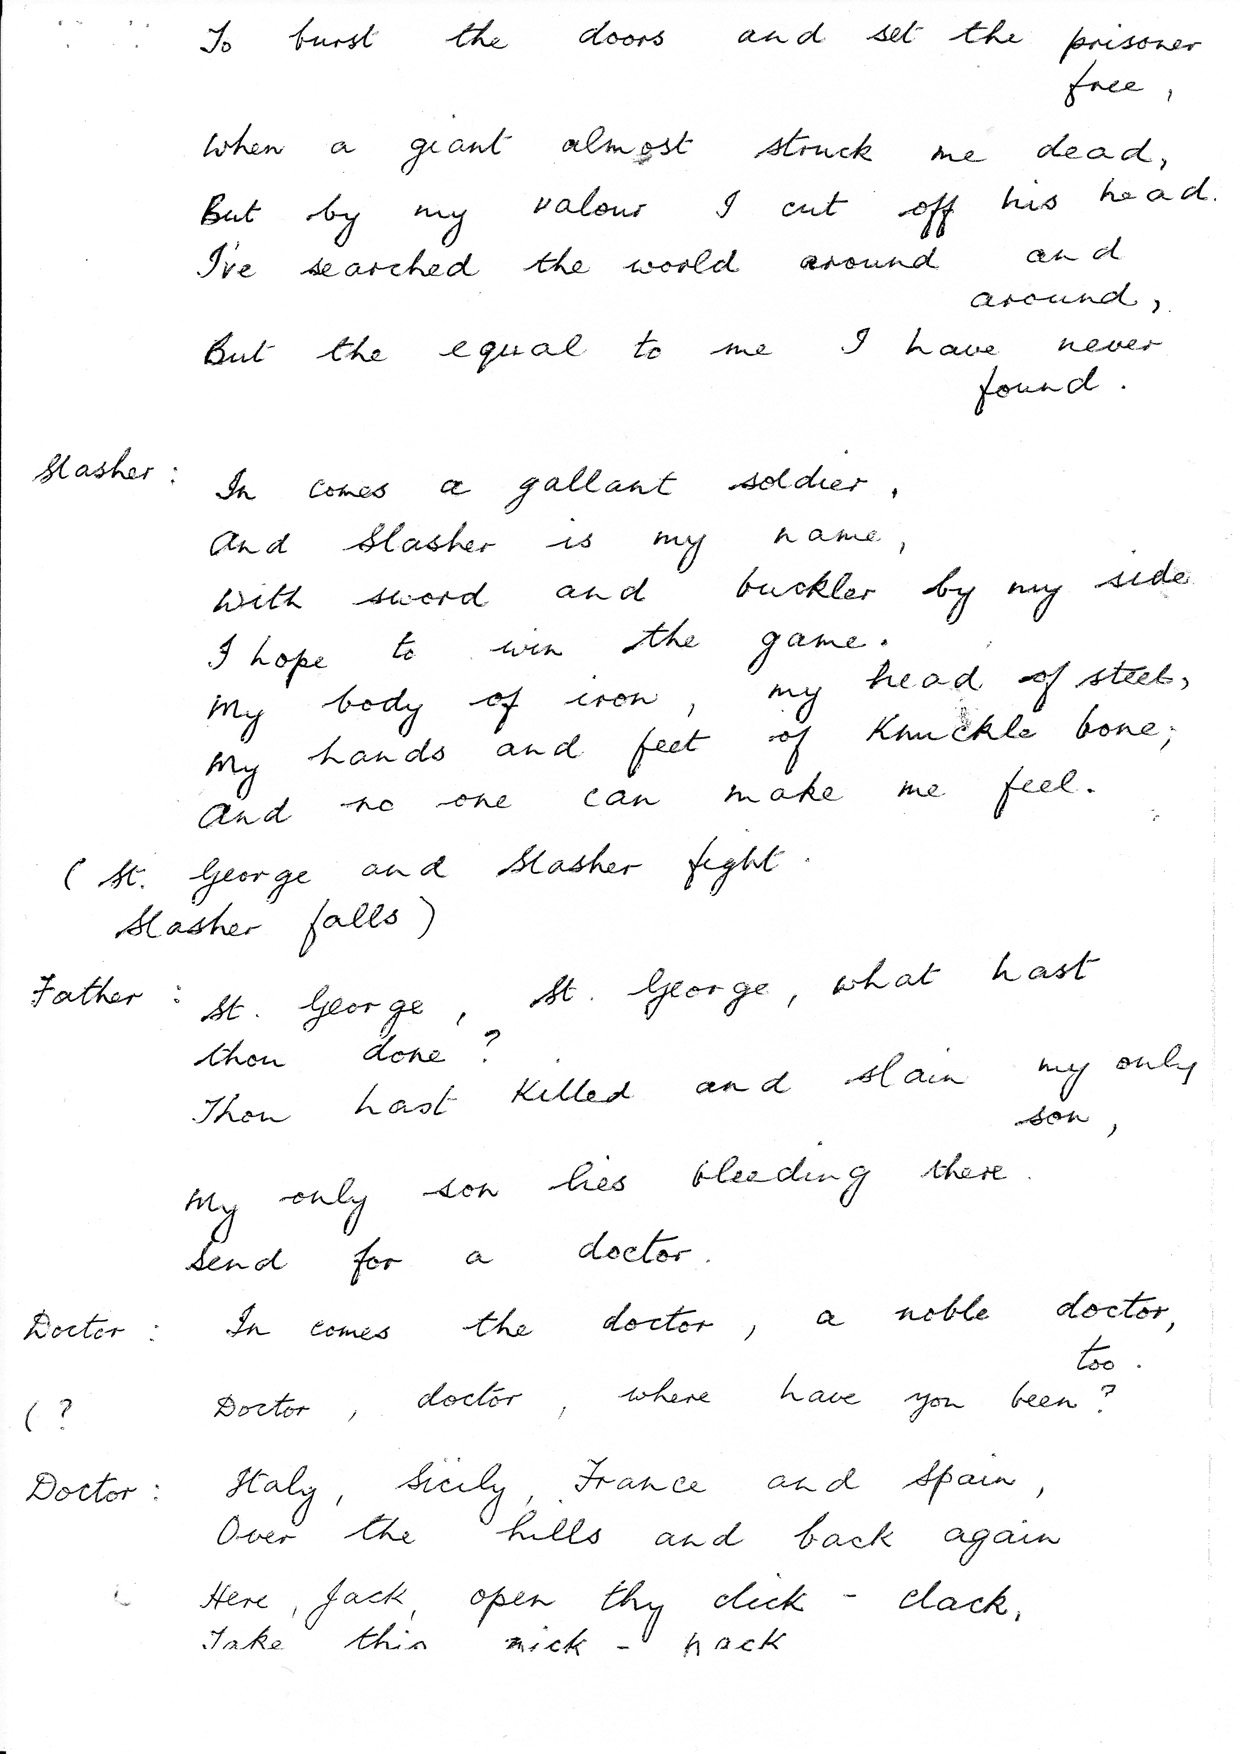 To burst the doors and set the prisoner
free,
When a giant almost struck me dead,
But by my valour I cut off his head.
I've searched the world around and
around,
But the equal to me I have never
found.
Slasher: In comes a gallant soldier,
And Slasher is my name,
With sword and buckler by my side
I hope to win the game.
My body of iron, my head of steel,
My hands and feet of Knuckle bone;
And no one can make me feel.
(St. George and Slasher fight.
Slasher falls)
Father: St. George, St. George, what hast
thou done?
Thou hast Killed and slain my only
son,
My only son lies bleeding there.
Send for a doctor.
Doctor: In comes the doctor, a noble doctor,
too.
(? Doctor, doctor, where have you been?
Doctor: Italy, Sicily, France and Spain,
Over the hills and back again
Here, Jack, open thy click - clack,
Take this nick - nack